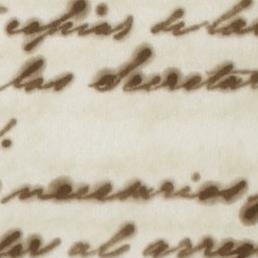 copias de la
las Secreta
necesarios
al arreg